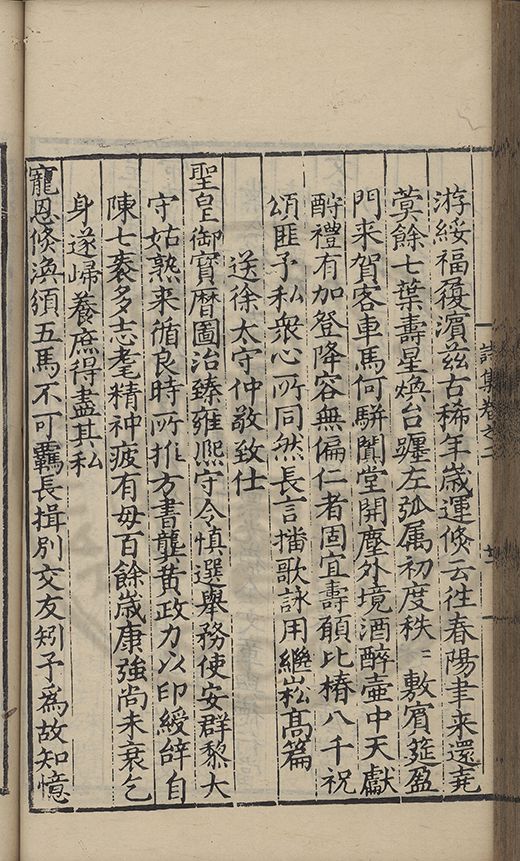 游綏福履濱兹古稀年歲運倐云徃春陽聿来還堯
蓂餘七葉壽星煥台躔左弧属初度秩〻敷賓筵盈
門来賀客車馬何駢闐堂開塵外境酒醉壺中天獻
酧禮有加登降容無偏仁者固宜壽願比椿八千祝
頌匪予私衆心所同然長言播歌詠用繼崧髙篇
送徐太守仲敬致仕
聖皇御寳曆圖治臻雍熈守令慎選舉務使安群黎大
守姑熟来循良時所推方書龔黄政力以印綬辝自
陳七袠多志耄精神疲有毋百餘歲康強尚未衰乞
身遂歸養庶得盡其私
寵恩倐渙頒五馬不可羈長揖別交友矧予為故知憶
詩集卷之二